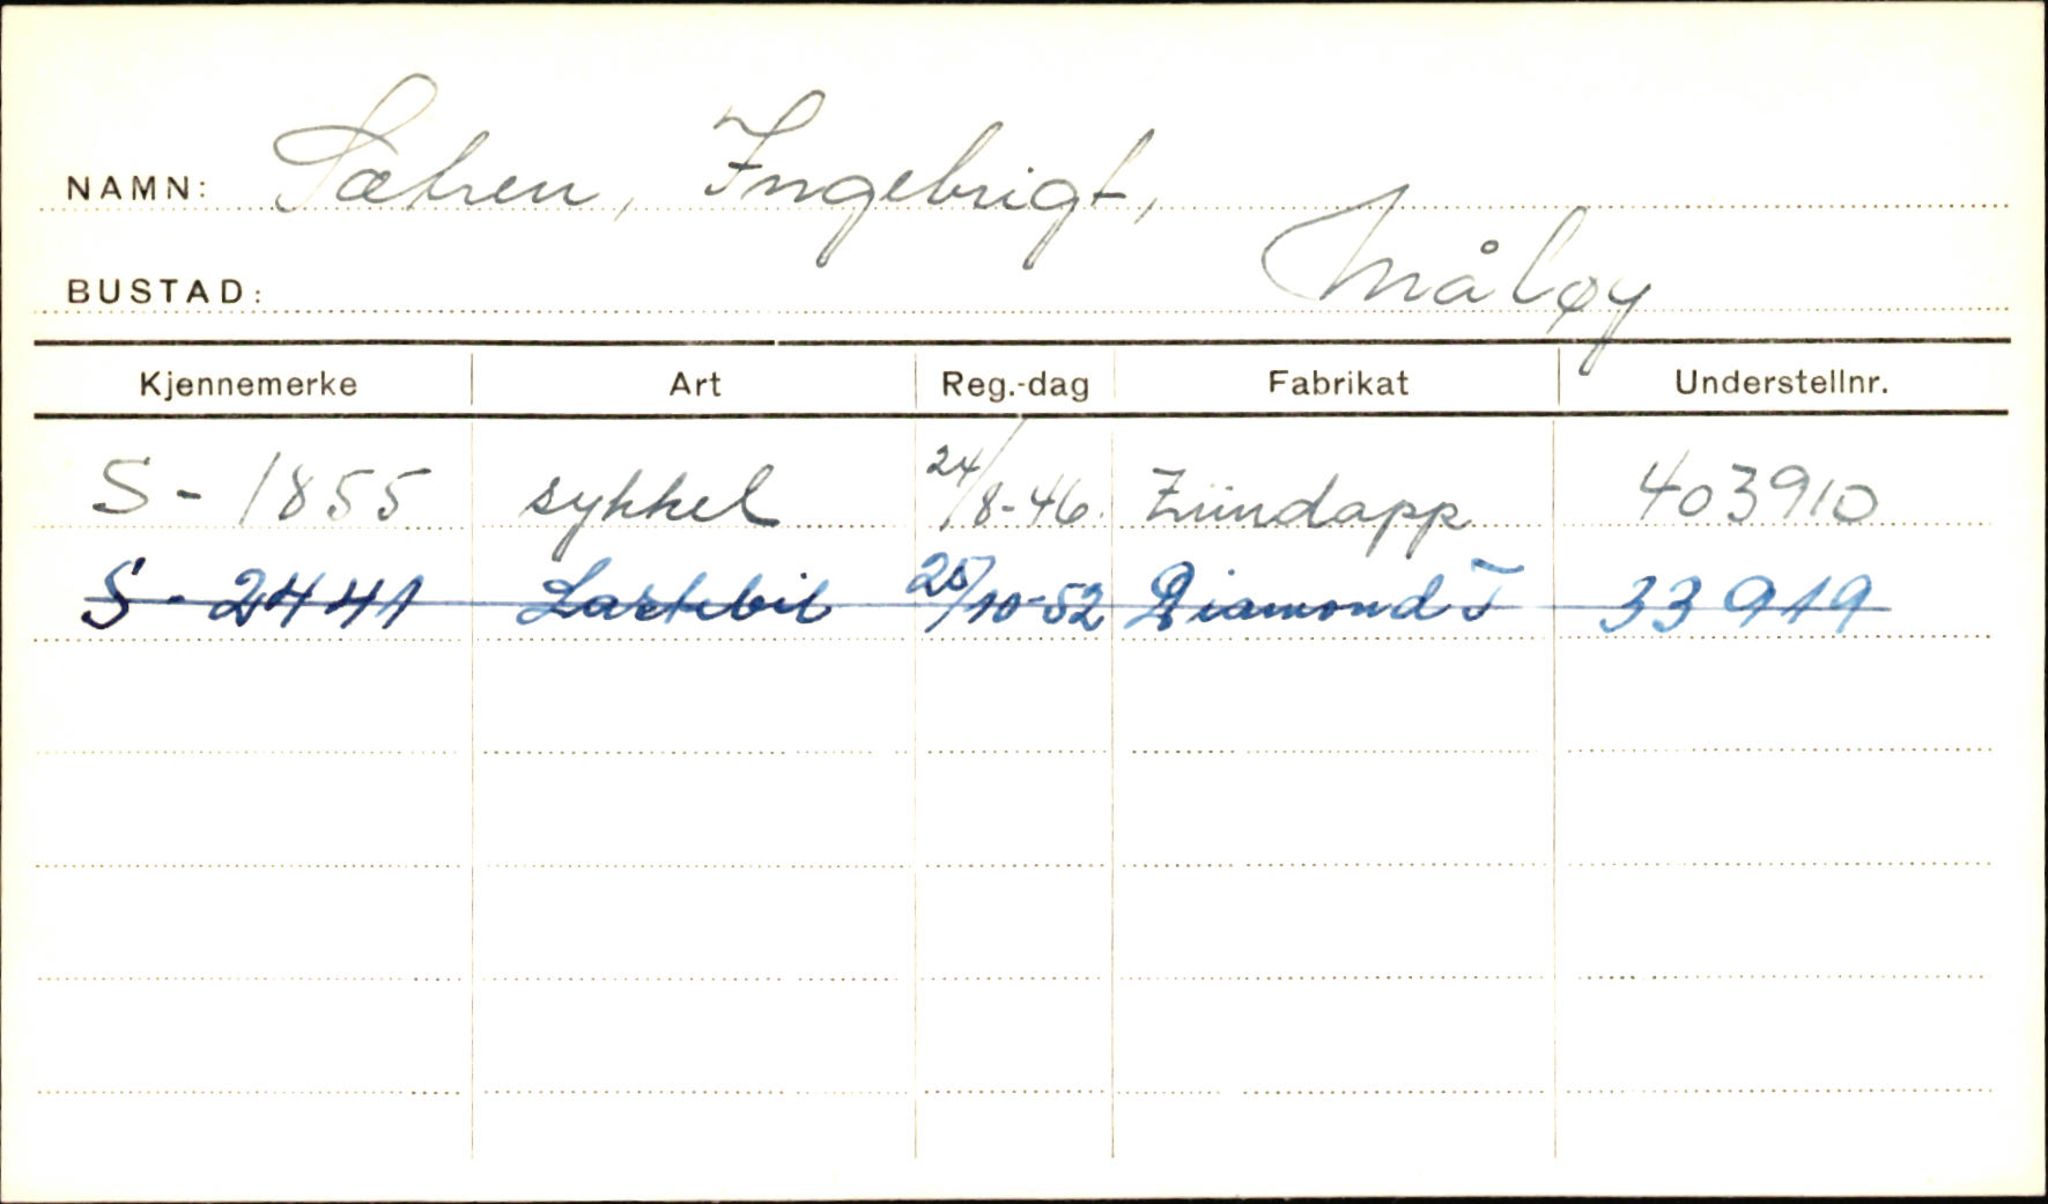 NAMN: Sætren, Ingebrigt,
BUSTAD: Måløy
Kjennemerke Art Reg.-dag Fabrikat Understellnr.
S - 1855 sykkel 24/8-46. Zündapp 403910
S - 2441 Lastebil 25/10-52 Diamond T 33919